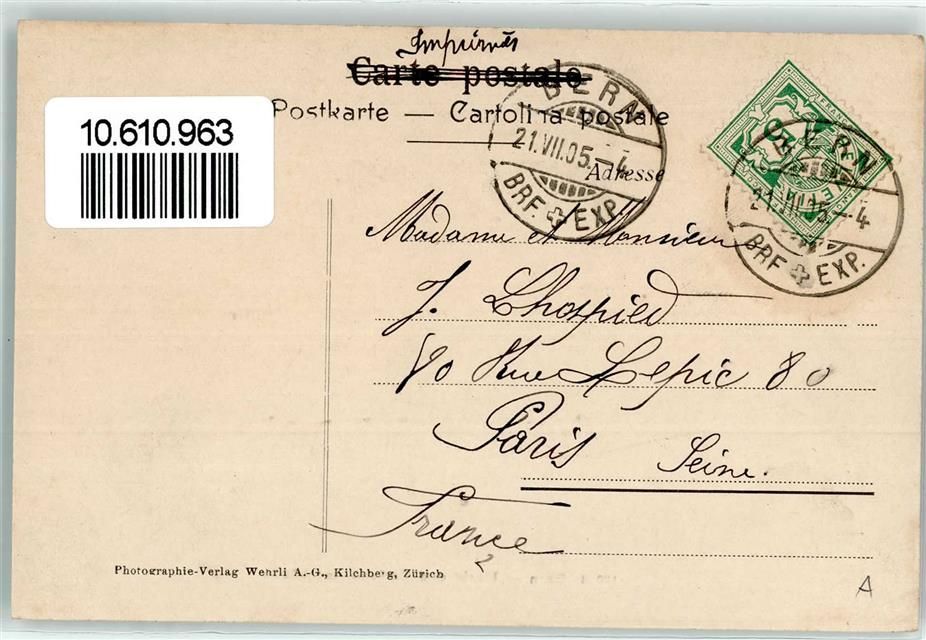 Imprimés
Carte postale
Postkarte — Cartolina postale
10.610.963
BERN
21.VII.05.-4
BRF. EXP.
Adresse
BERN
21.VII.05.-4
BRF. EXP.
Madame et Monsieur
J. Lhospied
80 Rue Lepic 80
Paris Seine.
France
Photographie-Verlag Wehrli A.-G., Kilchberg, Zürich
A